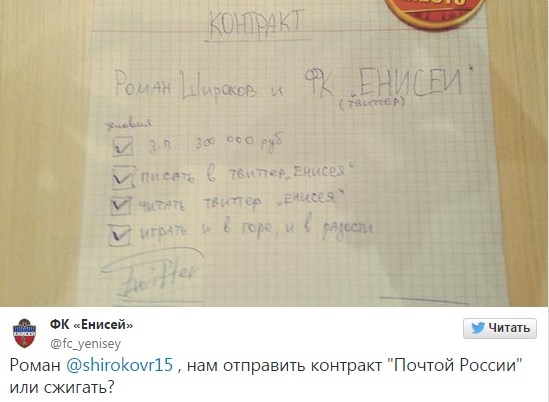 МЕСТО
КОНТРАКТ
Роман Широков и ФК "ЕНИСЕЙ"
(твиттер)
условия
з.п. 300 000 руб
писать в твиттер "Енисея"
читать твиттер "Енисея"
играть и в горе, и в радости
Twitter
ФК «Енисей»
@fc_yenisey
Читать
Роман @shirokovr15 , нам отправить контракт "Почтой России"
или сжигать?